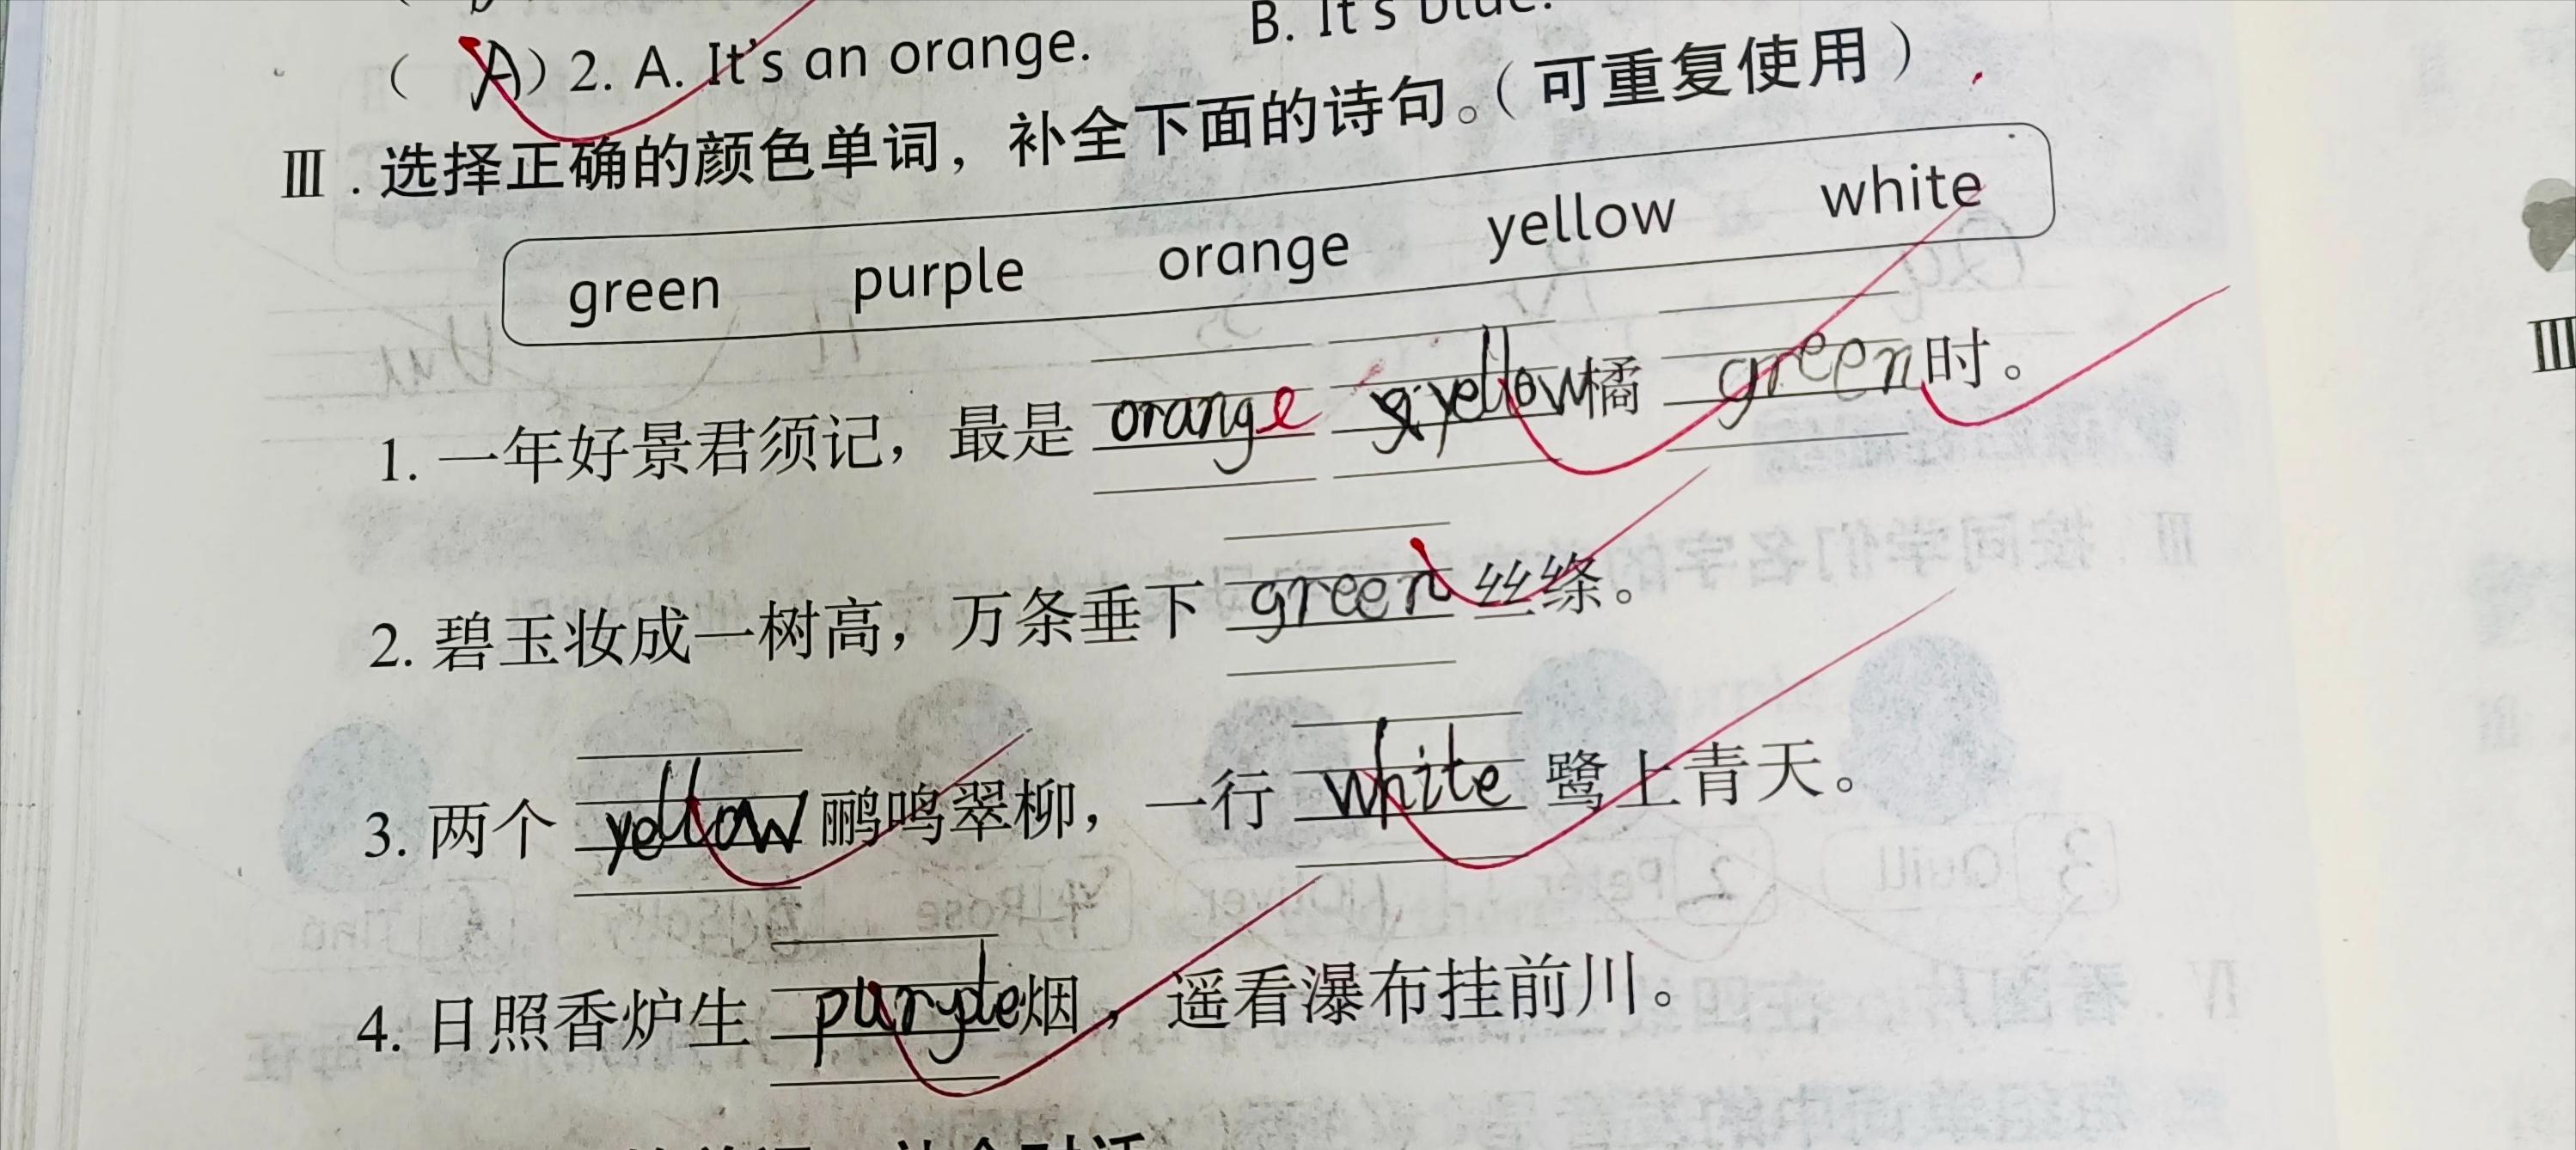 ( A ) 2. A. It's an orange. B. It's blue.
Ⅲ. 选择正确的颜色单词，补全下面的诗句。（可重复使用）
green purple orange yellow white
1. 一年好景君须记，最是 orange yellow 橘 green 时。
2. 碧玉妆成一树高，万条垂下 green 丝绦。
3. 两个 yellow 鹂鸣翠柳，一行 white 鹭上青天。
4. 日照香炉生 purple 烟，遥看瀑布挂前川。
Ⅲ